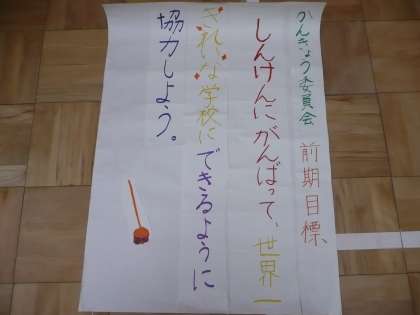 かんきょう委員会 前期目標、
しんけんにがんばって、世界一
きれいな学校にできるように
協力しよう。